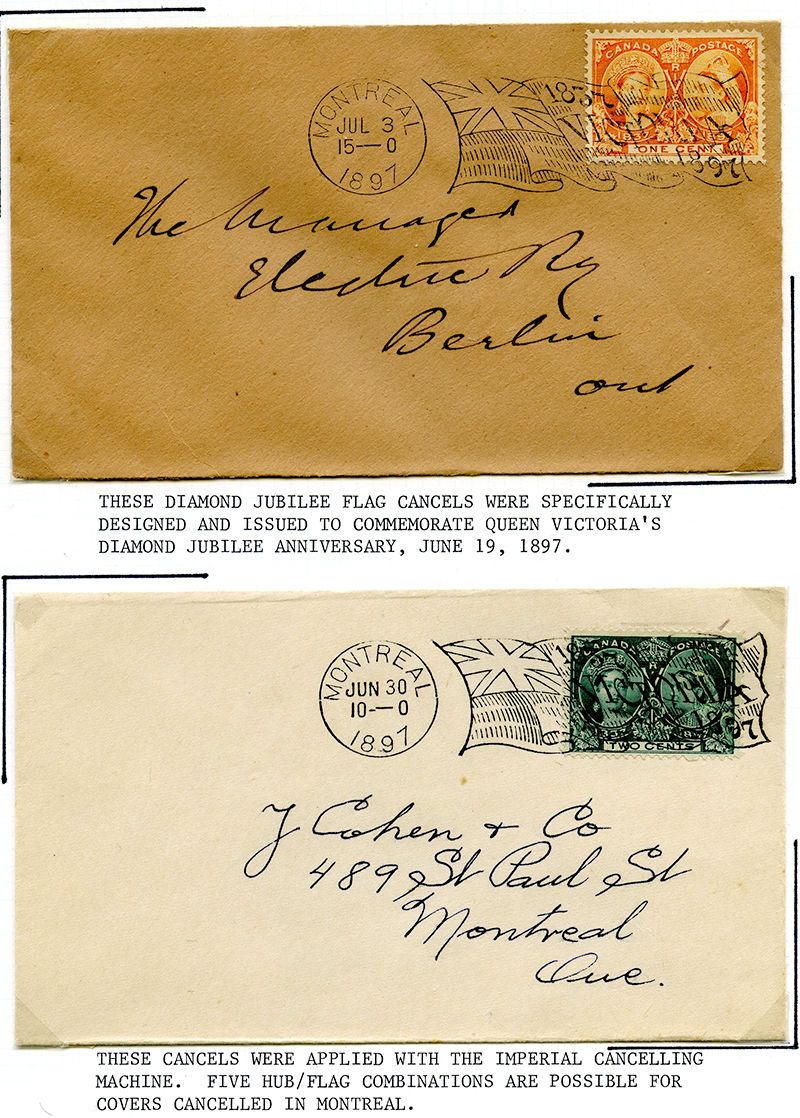 CANADA POSTAGE
MONTREAL
JUL 3
15—0
1897
1837
VICTORIA
1897
ONE CENT
The Manager
Electric Ry
Berlin
Ont
THESE DIAMOND JUBILEE FLAG CANCELS WERE SPECIFICALLY
DESIGNED AND ISSUED TO COMMEMORATE QUEEN VICTORIA'S
DIAMOND JUBILEE ANNIVERSARY, JUNE 19, 1897.
CANADA POSTAGE
MONTREAL
JUN 30
10-—0
1897
VICTORIA
1897
TWO CENTS
J Cohen + Co
489 St Paul St
Montreal
Que.
THESE CANCELS WERE APPLIED WITH THE IMPERIAL CANCELLING
MACHINE. FIVE HUB/FLAG COMBINATIONS ARE POSSIBLE FOR
COVERS CANCELLED IN MONTREAL.